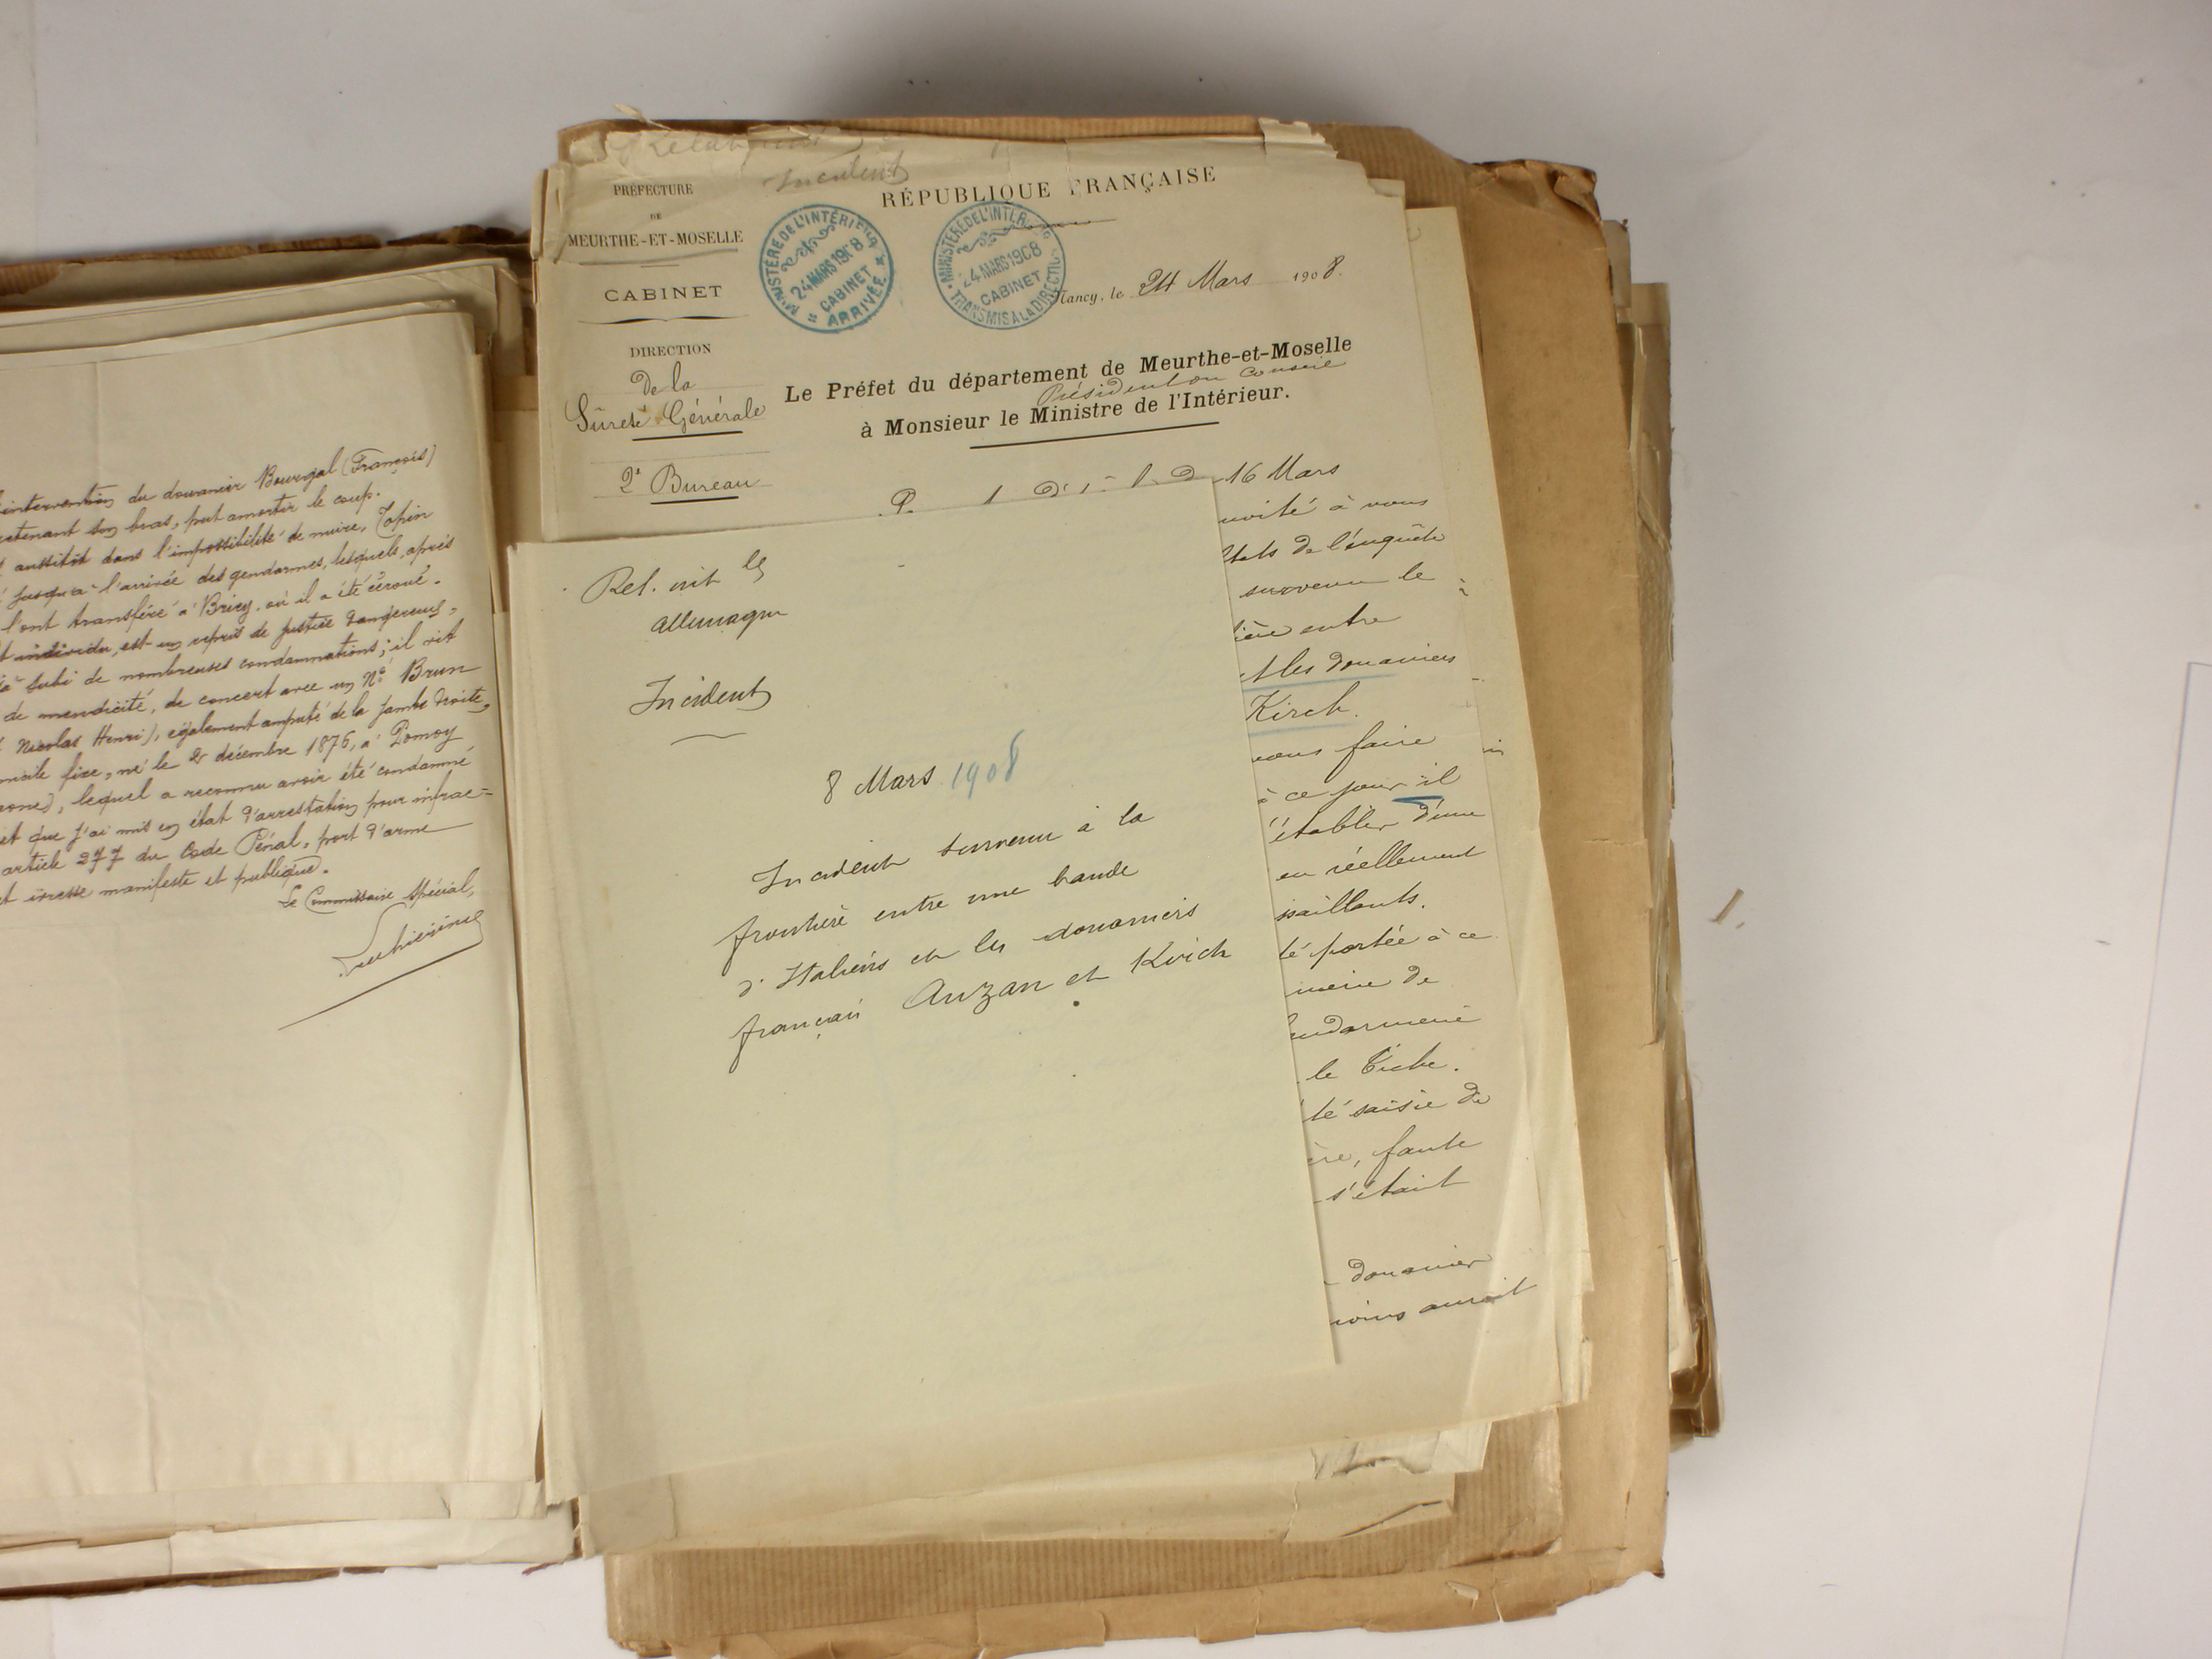 intervention du douanier Bourgal (François)
retenant son bras, put amortir le coup.
aussitôt dans l'impossibilité de nuire, Topin
jusqu'à l'arrivée des gendarmes, lesquels, après
l'ont transféré à Briey, où il a été écroué.
individu, est un repris de justice dangereux,
subi de nombreuses condamnations; il vit
de mendicité, de concert avec un Né Brun
Nicolas Henri), également amputé de la jambe droite,
fixe, né le 2 décembre 1876, à Domoy
lequel a reconnu avoir été condamné
et que j'ai mis en état d'arrestation pour infrac-
article 277 du Code Pénal, port d'arme
et ivresse manifeste et publique.
Le Commissaire spécial,
Incident
PRÉFECTURE
DE
MEURTHE-ET-MOSELLE
CABINET
DIRECTION
De la
Sûreté Générale
2e Bureau
RÉPUBLIQUE FRANÇAISE
MINISTÈRE DE L'INTÉRIEUR
24 MARS 1908
CABINET
ARRIVÉE
MINISTÈRE DE L'INTÉRIEUR
24 MARS 1908
CABINET
TRANSMIS A LA DIRECTION
Nancy, le 24 Mars 1908.
Le Préfet du département de Meurthe-et-Moselle
Président du Conseil
à Monsieur le Ministre de l'Intérieur.
16 Mars
à vous
de l'enquête
survenu le
entre
les douaniers
Kirch.
vous faire
à ce jour il
établir d'une
réellement
portée à ce
de
le Tiche.
saisie de
faute
s'était
douanier
aurait
Rel. avit les
Allemagne
Incident
8 Mars 1908
Incident survenu à la
frontière entre une bande
d'Italiens et les douaniers
français Auzan et Kirch